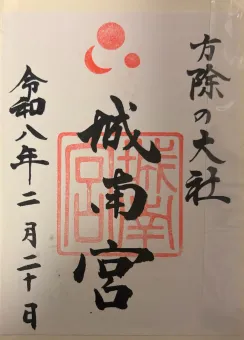 方除の大社
城南宮
令和八年二月二十日
城南宮印